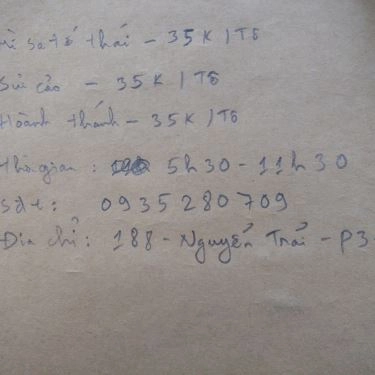 mì sa tế thái - 35K / Tô
Sủi cảo - 35K / Tô
Hoành thánh - 35K / Tô
Thời gian : 5h30 - 11h30
Sđt : 0935280709
Địa chỉ : 188 - Nguyễn Trãi - P3